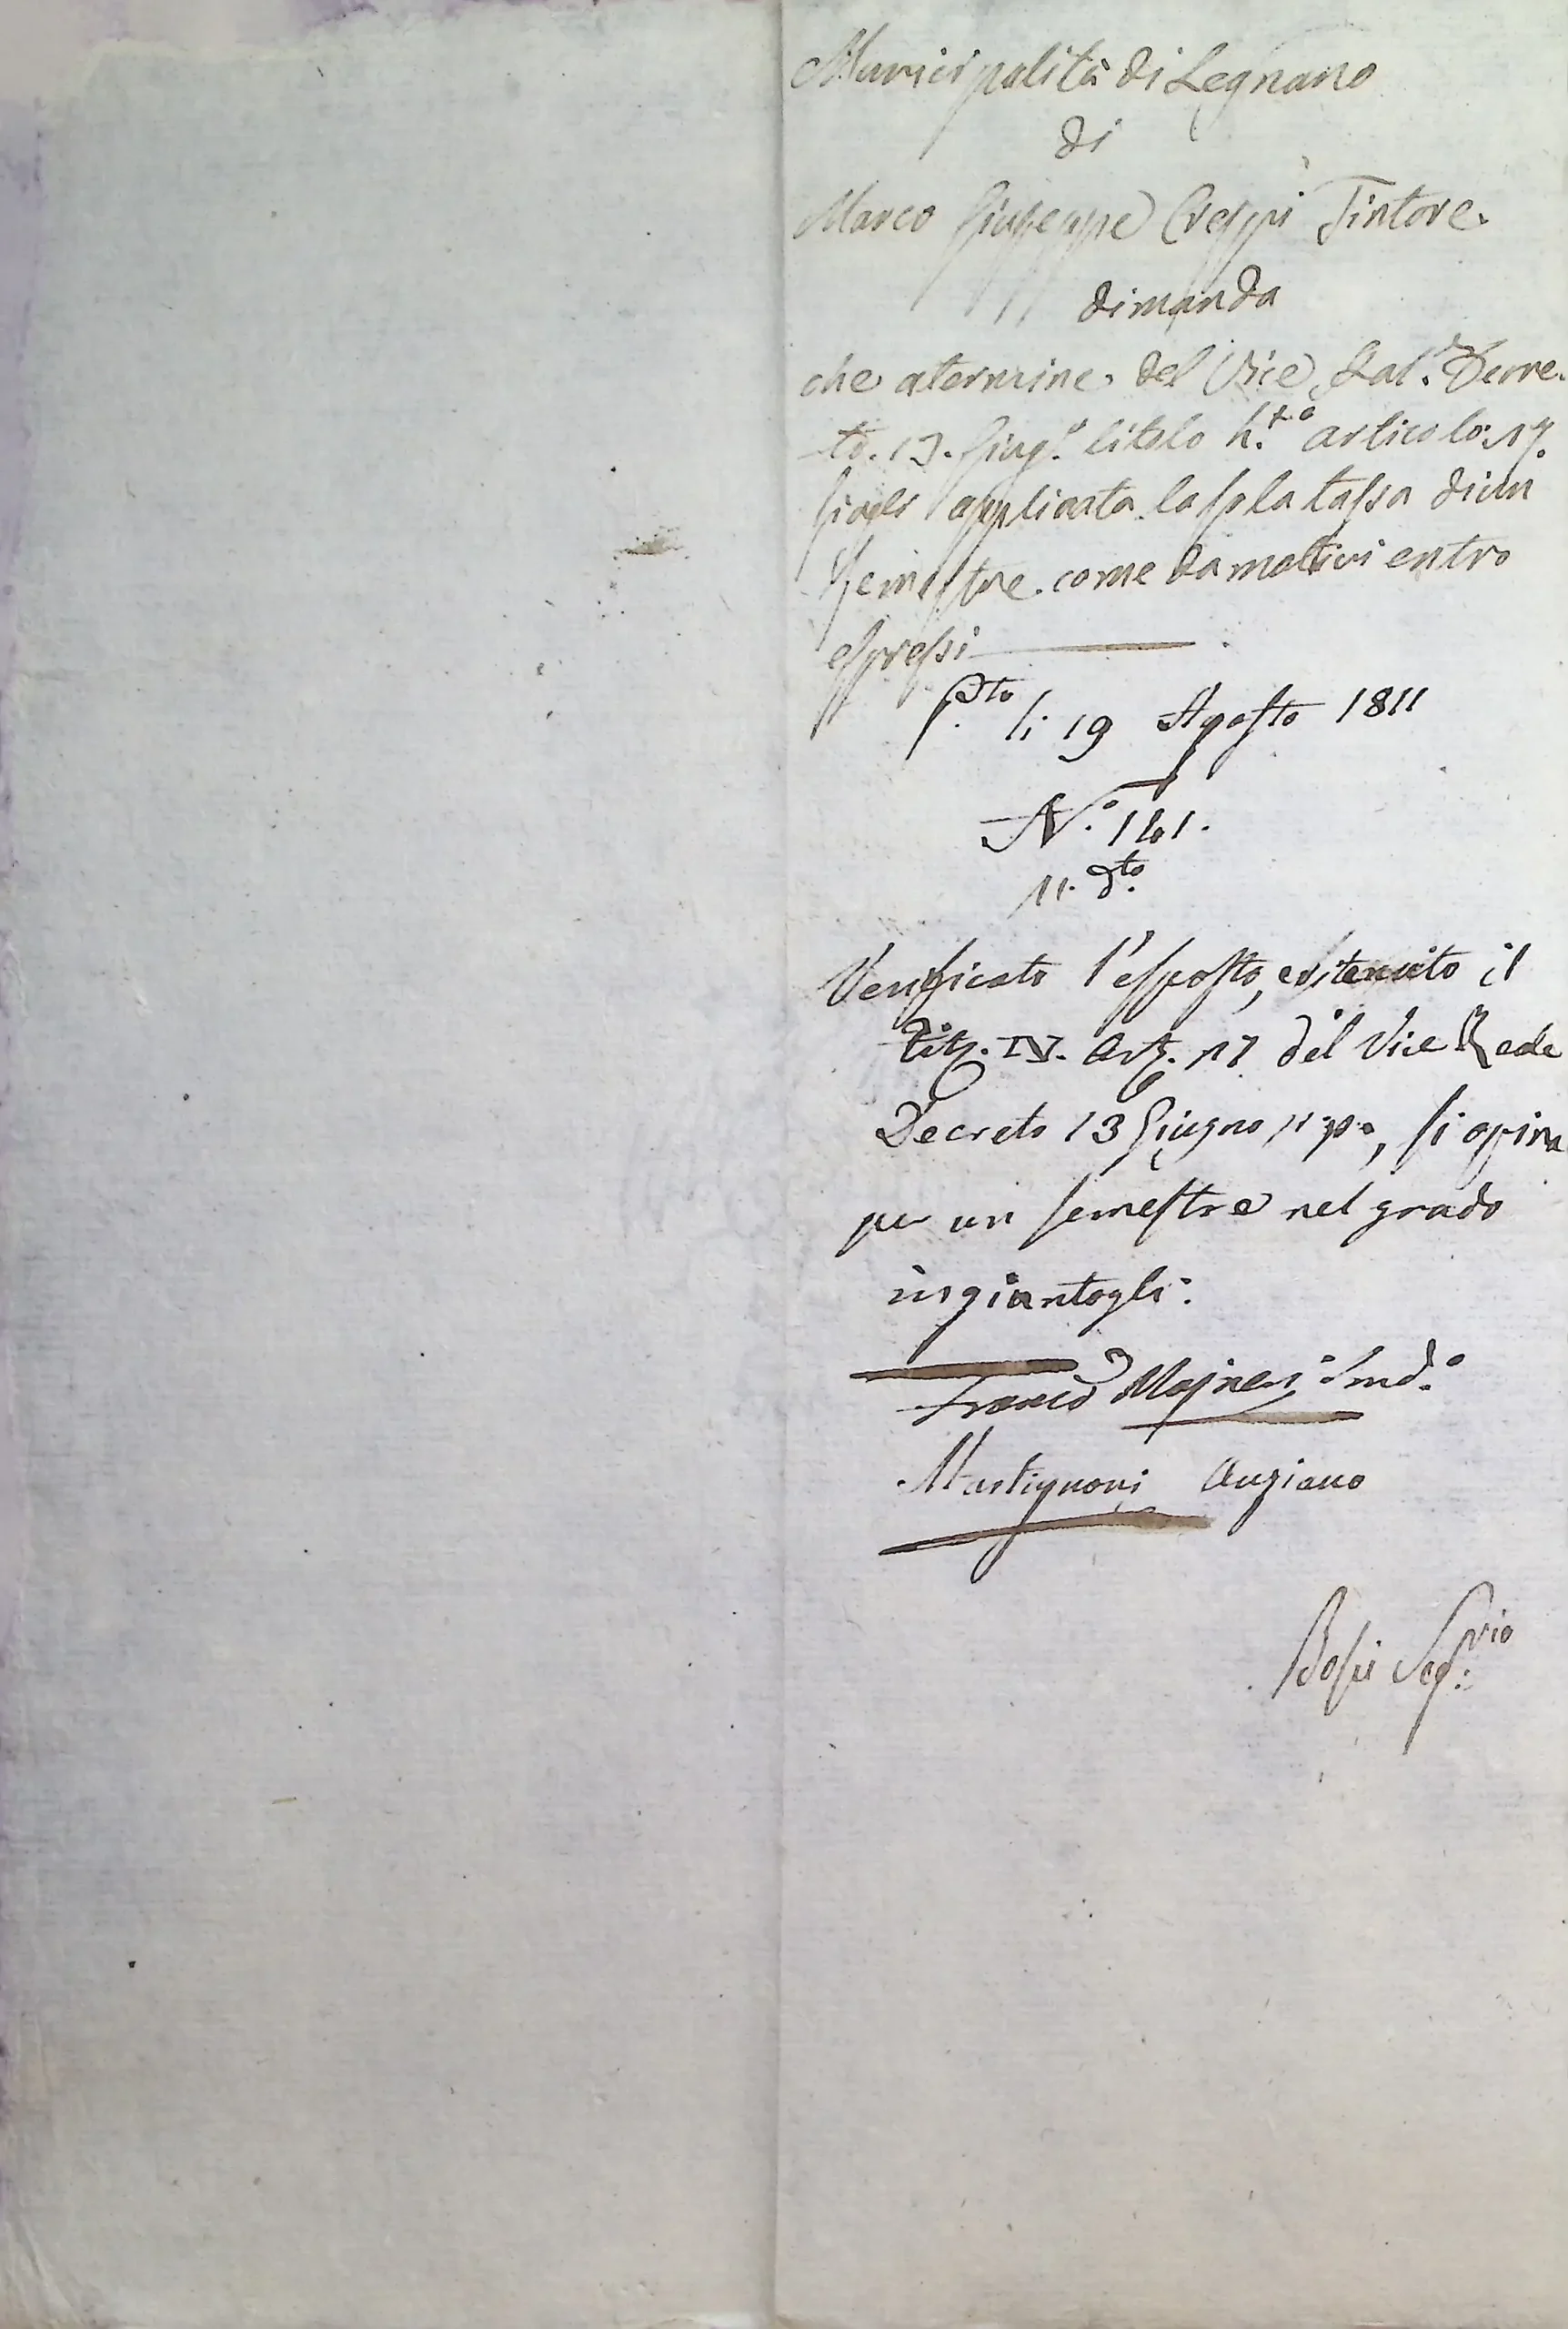 Municipalità di Legnano
di
Marco Giuseppe Crespi Tintore.
dimanda
che a termine del Vice Decre-
to. 13. Giug.º titolo articolo. 17.
siagli applicata la sola tassa di un
Semestre. come da motivi entro
espressi
P.to li 19 Agosto 1811
N.º 161.
11. d.to
Verificato l'esposto, e ritenuto il
Tit. IV. Art. 17 del Vice Reale
Decreto 13 Giugno p.º, si opina
per un semestre nel grado
ingiontogli.
Franco Sind.º
Martignoni Anziano
Bossi Seg.rio